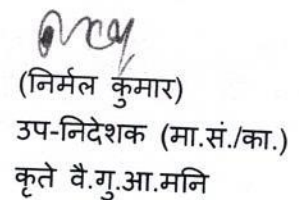 (निर्मल कुमार)
उप-निदेशक (मा.सं./का.)
कृते वै.गु.आ.मनि